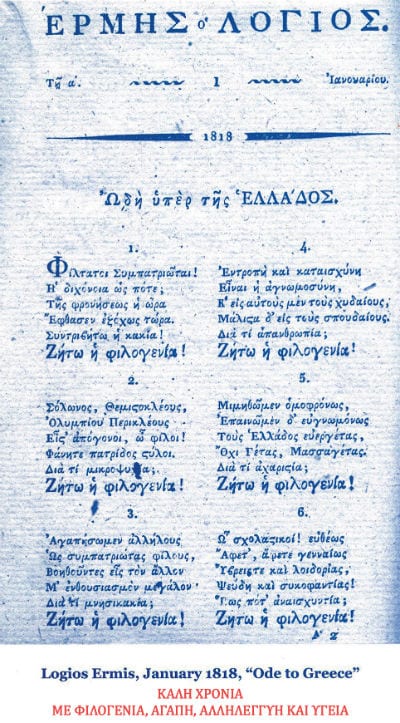 ἙΡΜΗΣ ὁ ΛΟΓΙΟΣ.
Τῇ α'. 1 Ἰανουαρίου.
1818
Ὠδὴ ὑπὲρ τῆς ἙΛΛΆΔΟΣ.
1.
Φίλτατοι Συμπατριῶται!
Ἡ διχόνοια ὡς πότε;
Τῆς φρονήσεως ἡ ὥρα
Ἔφθασεν ἐξέχως τώρα.
Συντριβήτω ἡ κακία!
Ζήτω ἡ φιλογενία!
2.
Σόλωνος, Θεμιστοκλέους,
Ὀλυμπίου Περικλέους
Εἶσ' ἀπόγονοι, ὦ φίλοι!
Φάνητε πατρίδος στύλοι.
Διὰ τί μικροψυχία;
Ζήτω ἡ φιλογενία!
3.
Ἀγαπήσωμεν ἀλλήλους
Ὡς συμπατριώτας φίλους,
Βοηθοῦντες εἷς τὸν ἄλλον
Μ' ἐνθουσιασμὸν μεγάλον·
Διὰ τί μνησικακία;
Ζήτω ἡ φιλογενία!
4.
Ἐντροπὴ καὶ καταισχύνη
Εἶναι ἡ ἀγνωμοσύνη,
Κ' εἰς αὐτοὺς μὲν τοὺς χυδαίους,
Μάλιστα δ' εἰς τοὺς σπουδαίους.
Διὰ τί ἀπανθρωπία;
Ζήτω ἡ φιλογενία!
5.
Μιμηθῶμεν ὁμοφρόνως,
Ἐπαινῶμεν δ' εὐγνωμόνως
Τοὺς Ἑλλάδος εὐεργέτας,
Ὄχι Γέτας, Μασσαγέτας.
Διὰ τί ἀχαριστία;
Ζήτω ἡ φιλογενία!
6.
Ὦ σχολαστικοὶ! εὐθέως
Ἄφετ', ἄφετε γενναίως
Ὕβρεις τε καὶ λοιδορίας,
Ψεύδη καὶ συκοφαντίας!
Ἕως πότ' ἀναισχυντία;
Ζήτω ἡ φιλογενία!
Logios Ermis, January 1818, “Ode to Greece”
ΚΑΛΗ ΧΡΟΝΙΑ
ΜΕ ΦΙΛΟΓΕΝΙΑ, ΑΓΑΠΗ, ΑΛΛΗΛΕΓΓΥΗ ΚΑΙ ΥΓΕΙΑ